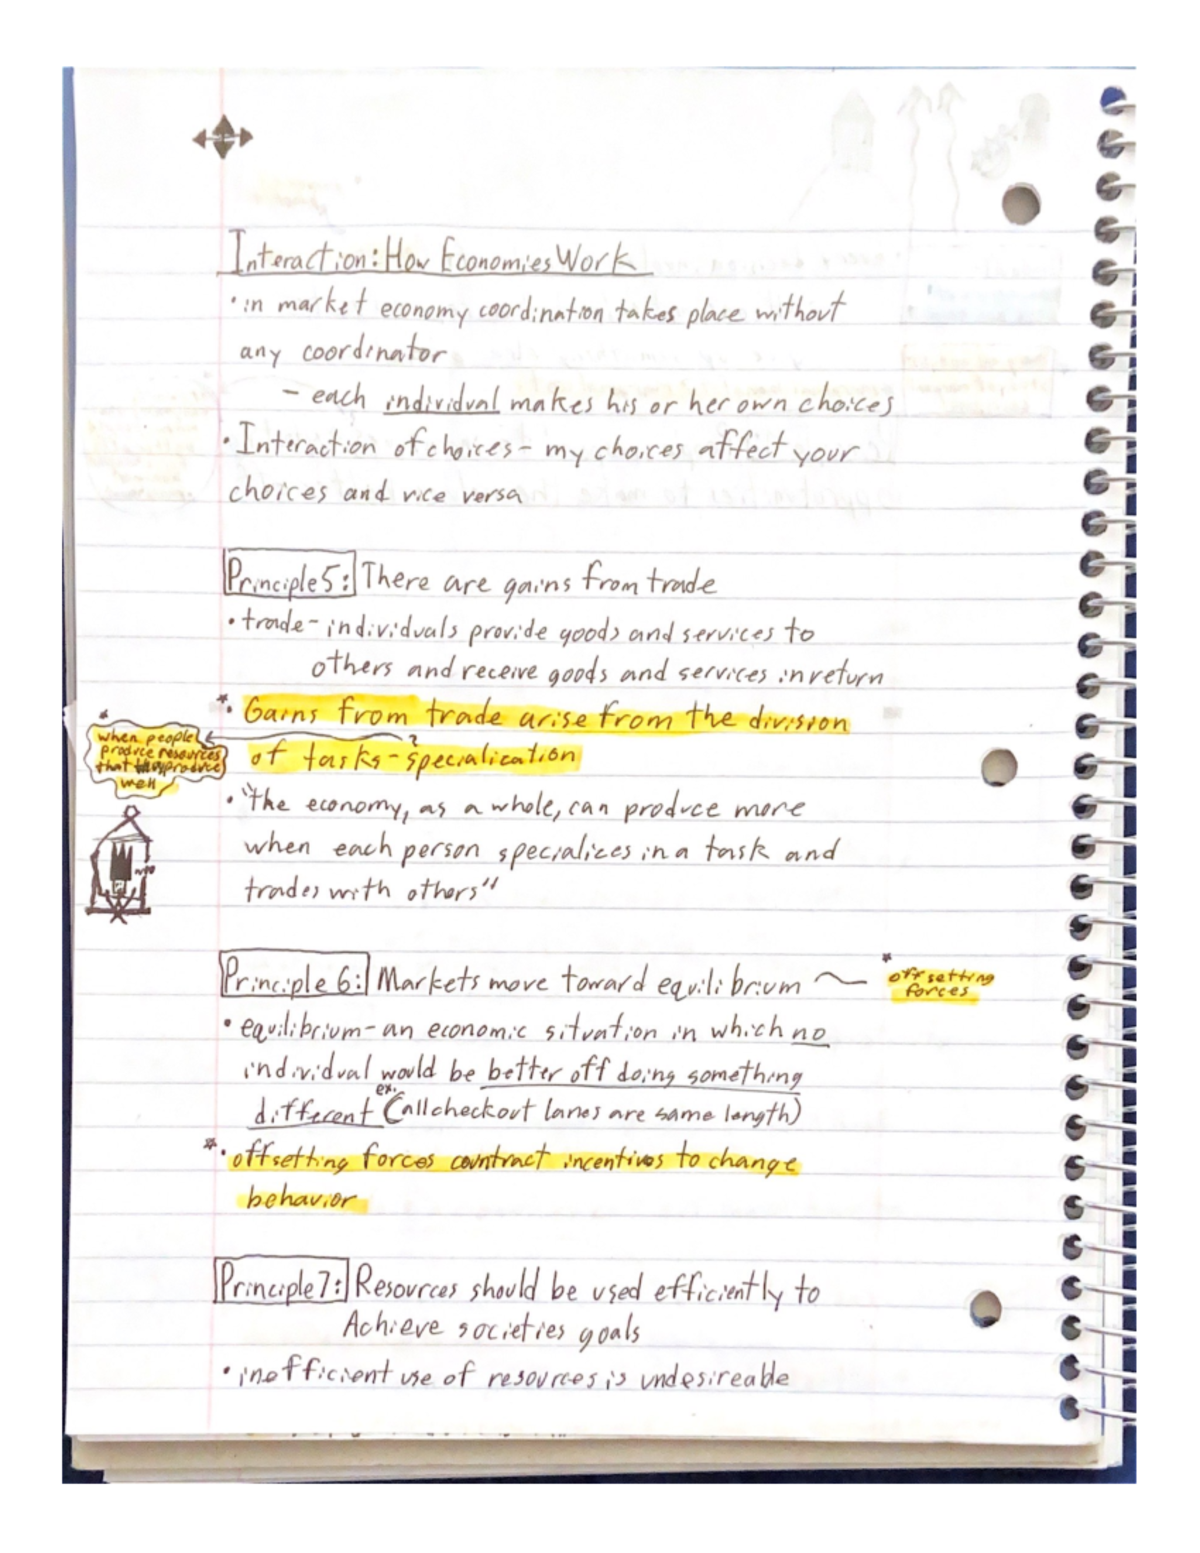 Interaction: How Economies Work
• in market economy coordination takes place without
any coordinator
– each individual makes his or her own choices
• Interaction of choices – my choices affect your
choices and vice versa
Principle 5: There are gains from trade
• trade – individuals provide goods and services to
others and receive goods and services in return
*• Gains from trade arise from the division
of tasks – specialication
*
when people
produce resources
that they produce
well
• "the economy, as a whole, can produce more
when each person specializes in a task and
trades with others"
Principle 6: Markets move toward equilibrium
*
offsetting
forces
• equilibrium – an economic situation in which no
individual would be better off doing something
different ex. (all checkout lanes are same length)
*• offsetting forces countract incentives to change
behavior
Principle 7: Resources should be used efficiently to
Achieve societies goals
• inefficient use of resources is undesireable